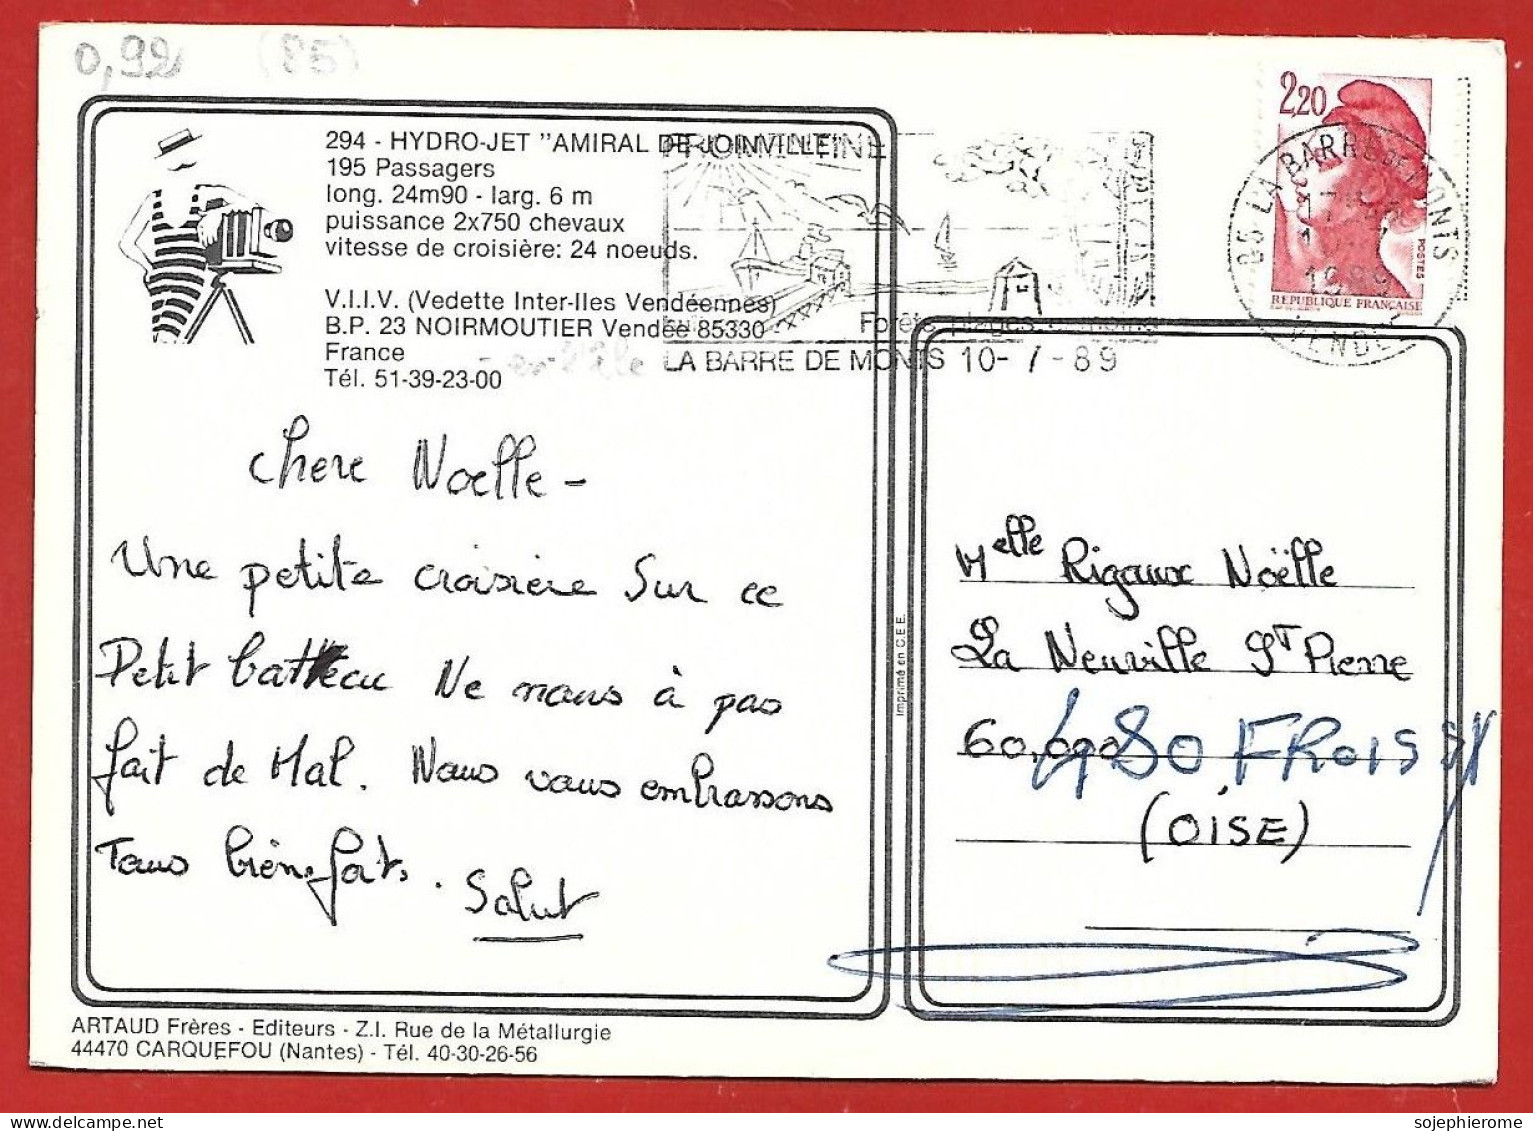 0,92 (85)
294 - HYDRO-JET "AMIRAL DE JOINVILLE"
195 Passagers
long. 24m90 - larg. 6 m
puissance 2x750 chevaux
vitesse de croisière: 24 noeuds.
V.I.I.V. (Vedette Inter-Iles Vendéennes)
B.P. 23 NOIRMOUTIER Vendée 85330
- en l'île
France
Tél. 51-39-23-00
FROMENTINE
Forêts plages
LA BARRE DE MONTS 10-7-89
2,20
POSTES
REPUBLIQUE FRANÇAISE
85 LA BARRE DE MONTS
17
10
1989
VENDEE
chere Noelle -
Une petite croisiere sur ce
Petit batteau Ne nous à pas
fait de Mal. Nous vous embrassons
Tous bien fort.
Salut
Imprimé en C.E.E.
Melle Rigaux Noëlle
La Neuville ST Pierre
60.000
480 FROISSY
(OISE)
ARTAUD Frères - Editeurs - Z.I. Rue de la Métallurgie
44470 CARQUEFOU (Nantes) - Tél. 40-30-26-56
sojephierome